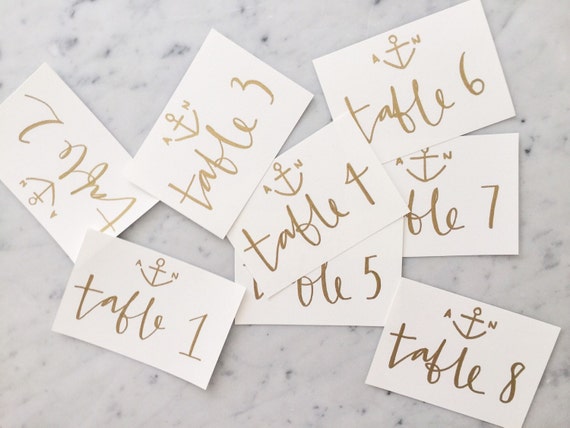 A N
table 1
table 2
A N
A N
table 3
A N
table 4
ble 5
A N
table 6
N
ble 7
A N
table 8